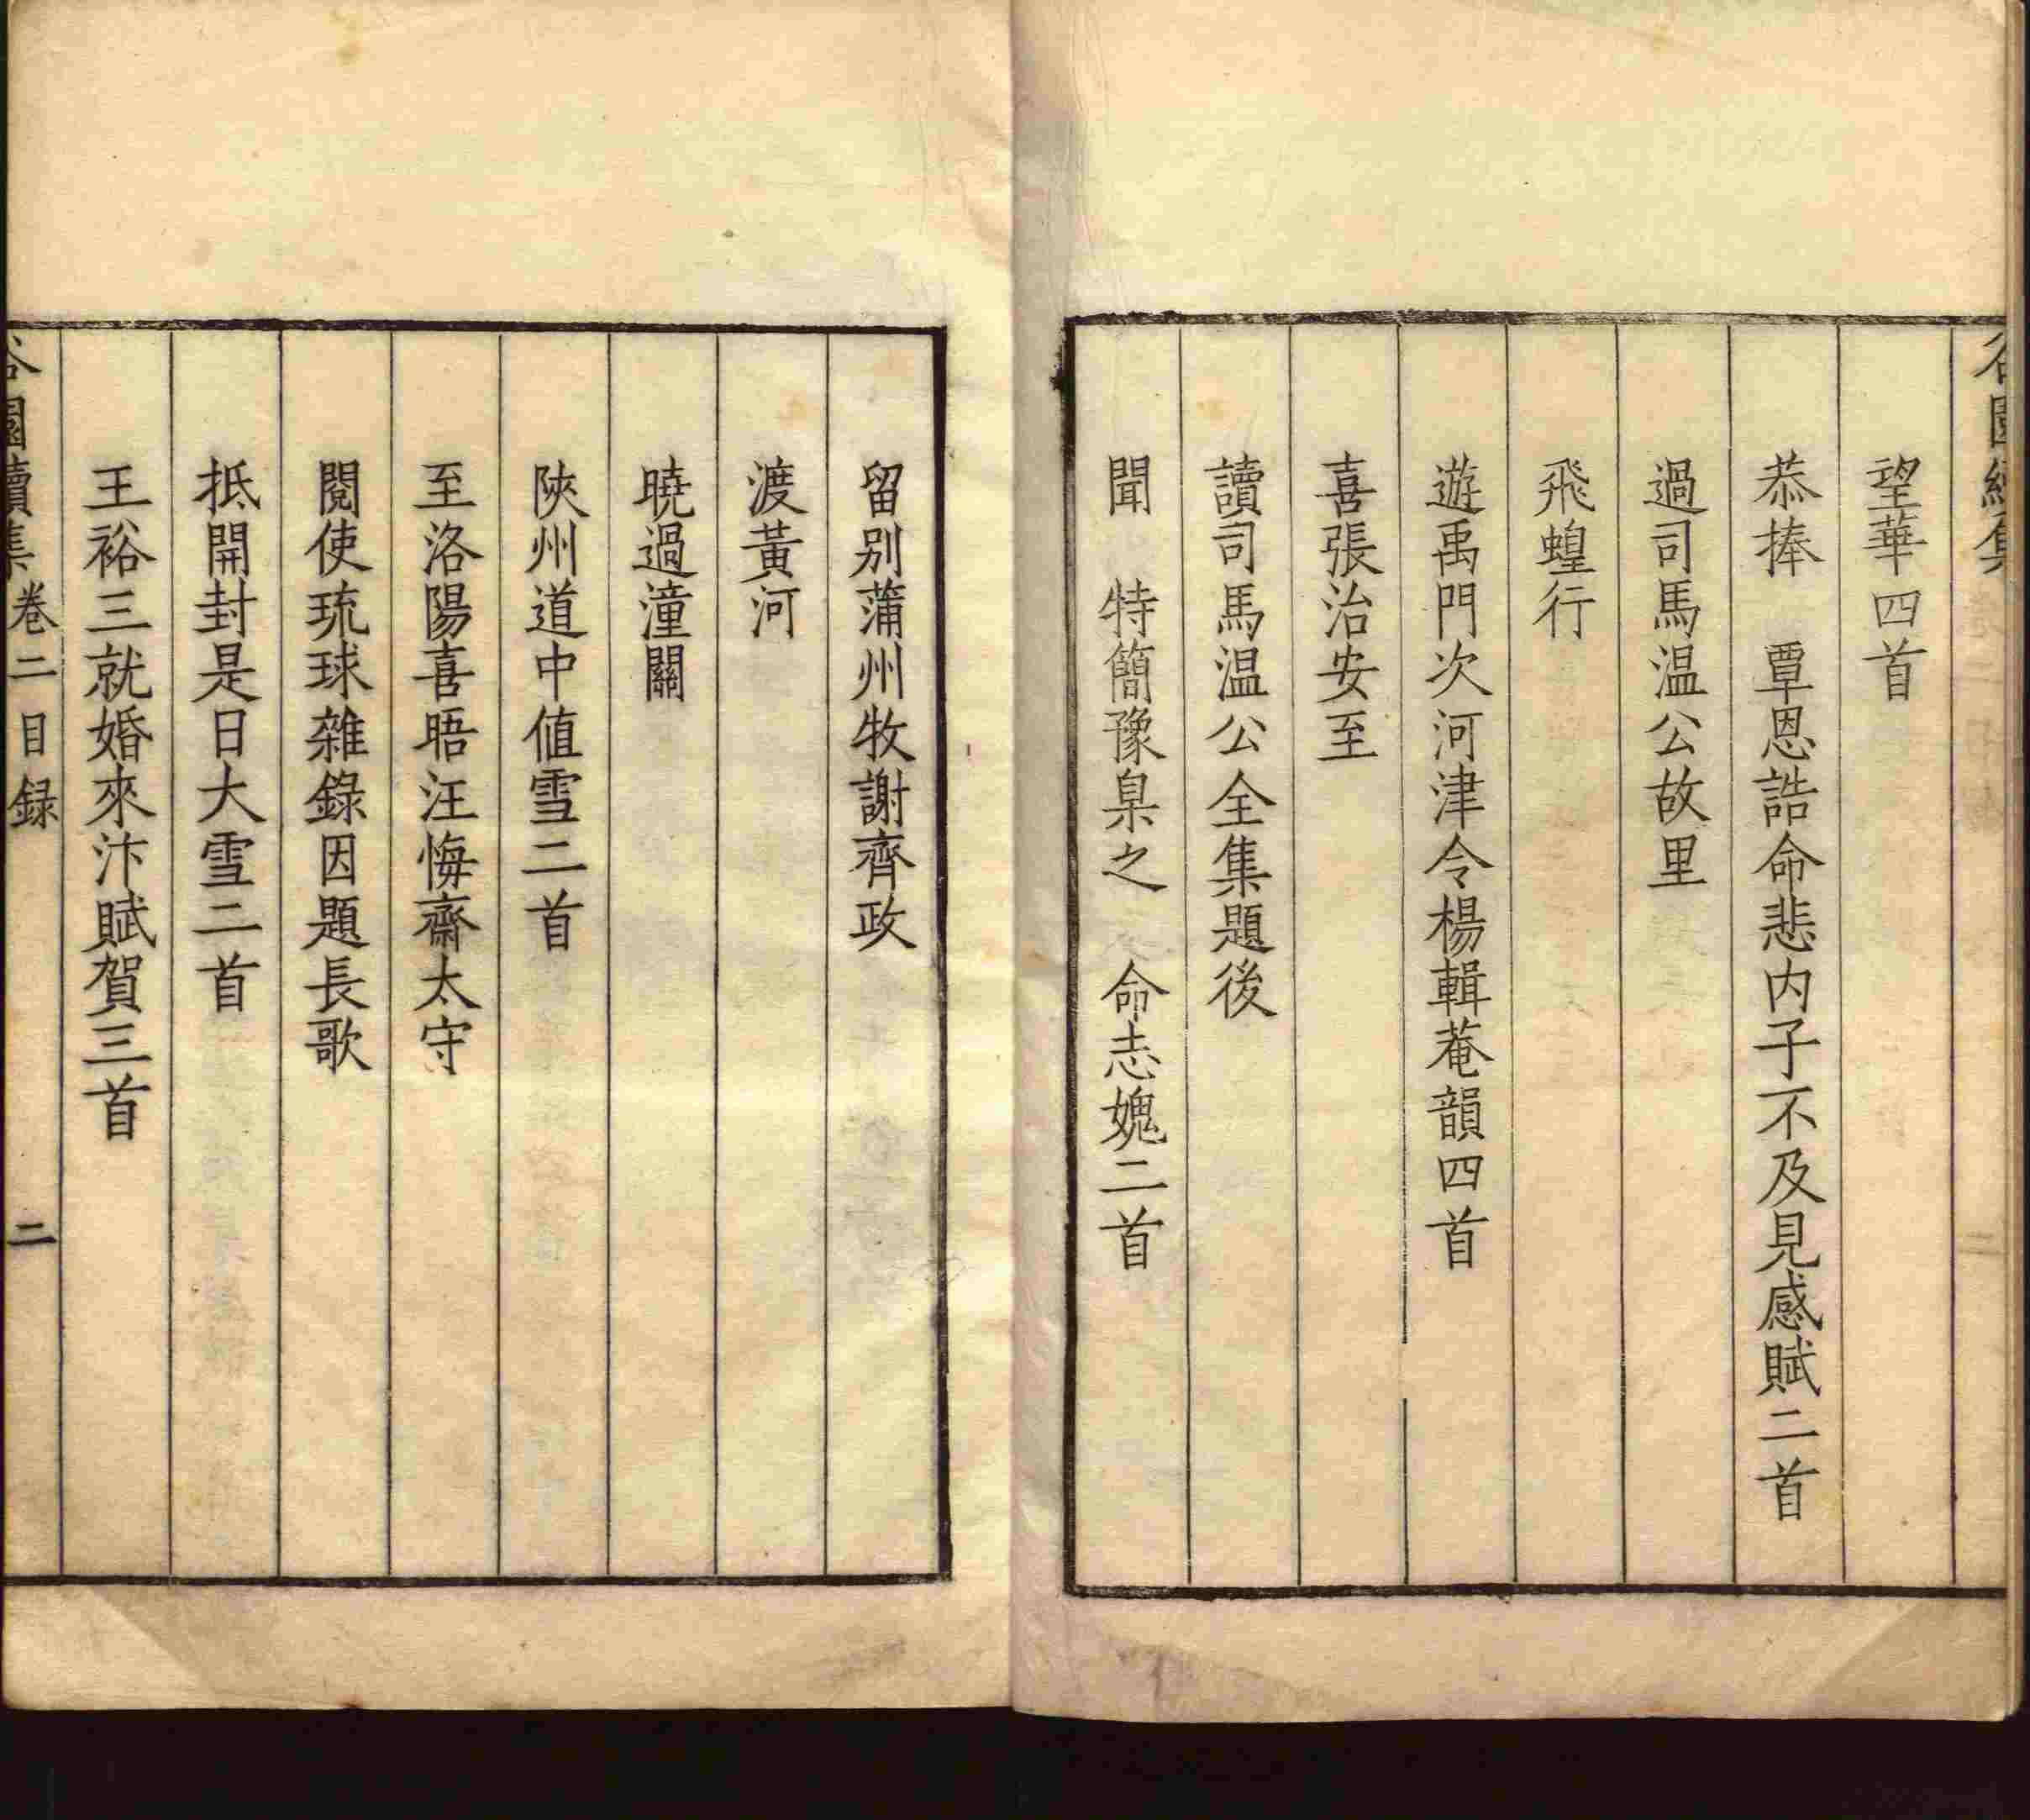 望華四首
恭捧　覃恩誥命悲内子不及見感賦二首
過司馬温公故里
飛蝗行
遊禹門次河津令楊輯菴韻四首
喜張治安至
讀司馬温公全集題後
聞　特簡豫臬之　命志媿二首
留别蒲州牧謝齊政
渡黃河
曉過潼關
陝州道中値雪二首
至洛陽喜晤汪悔齋太守
閱使琉球雜錄因題長歌
抵開封是日大雪二首
王裕三就婚來汴賦賀三首
谷園續集 卷二目録 二